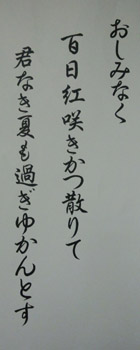 おしみなく
百日紅咲きかつ散りて
君なき夏も過ぎゆかんとす